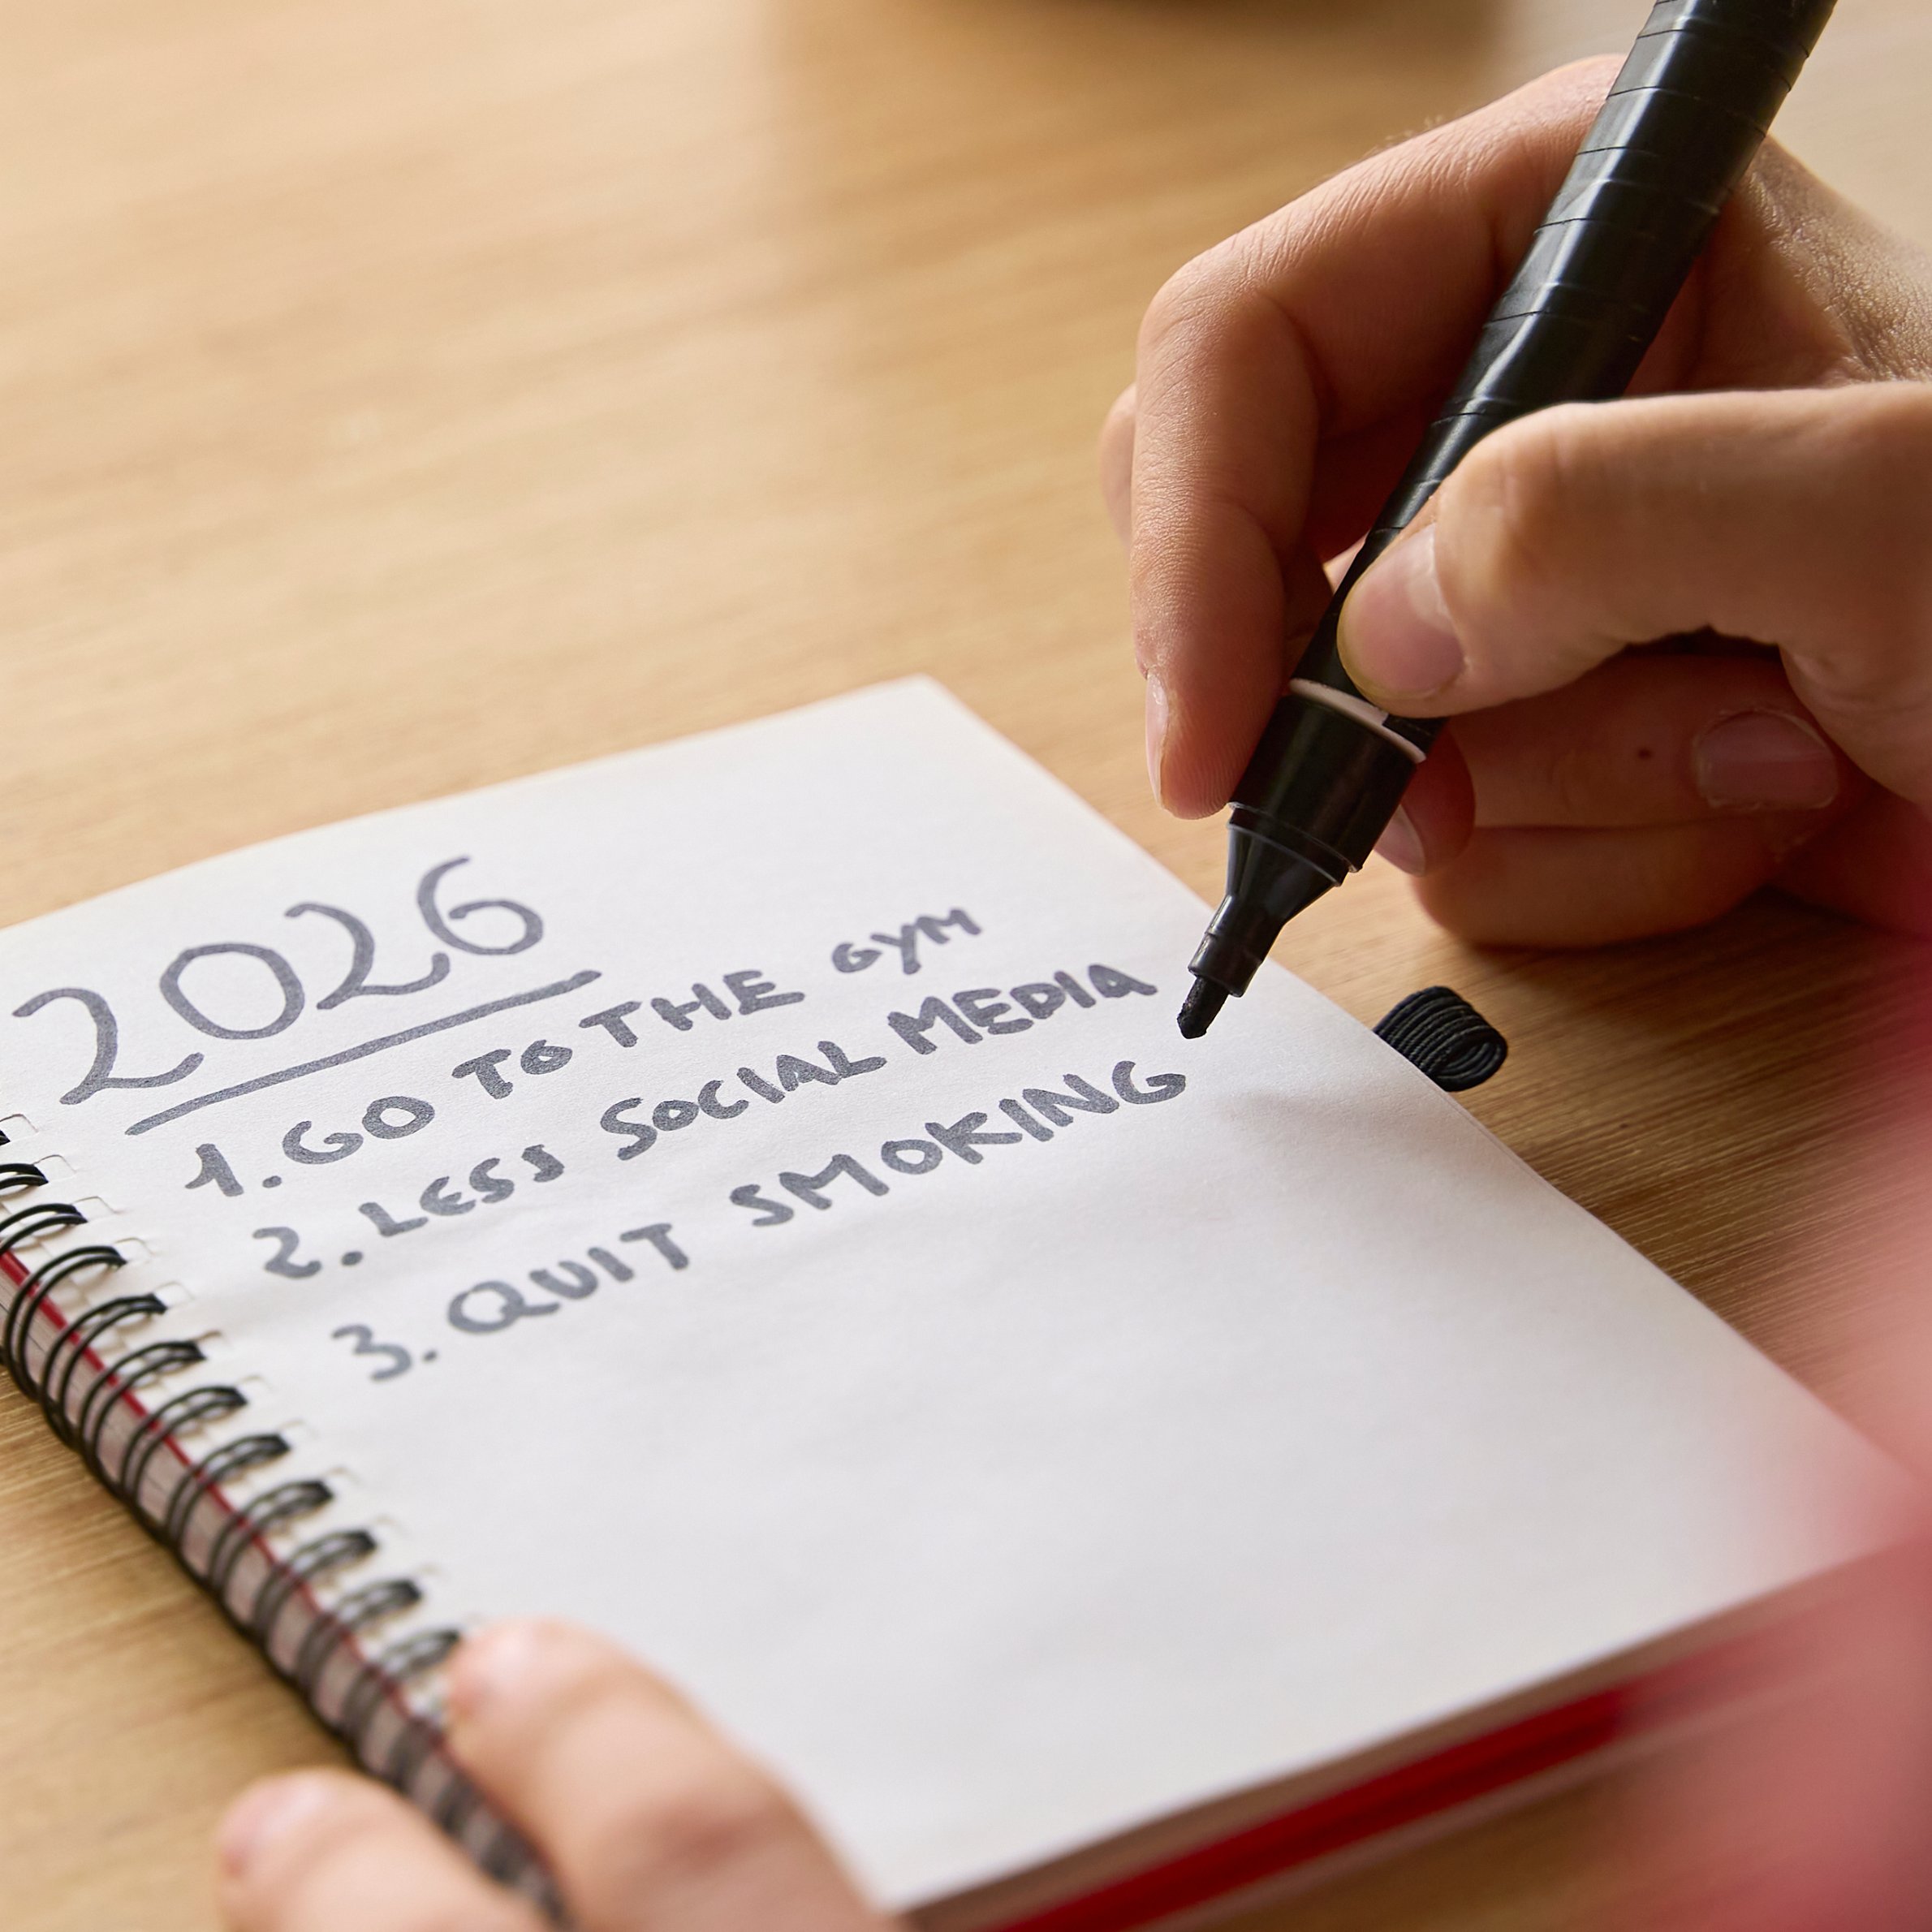 2026
1. GO TO THE GYM
2. LESS SOCIAL MEDIA
3. QUIT SMOKING